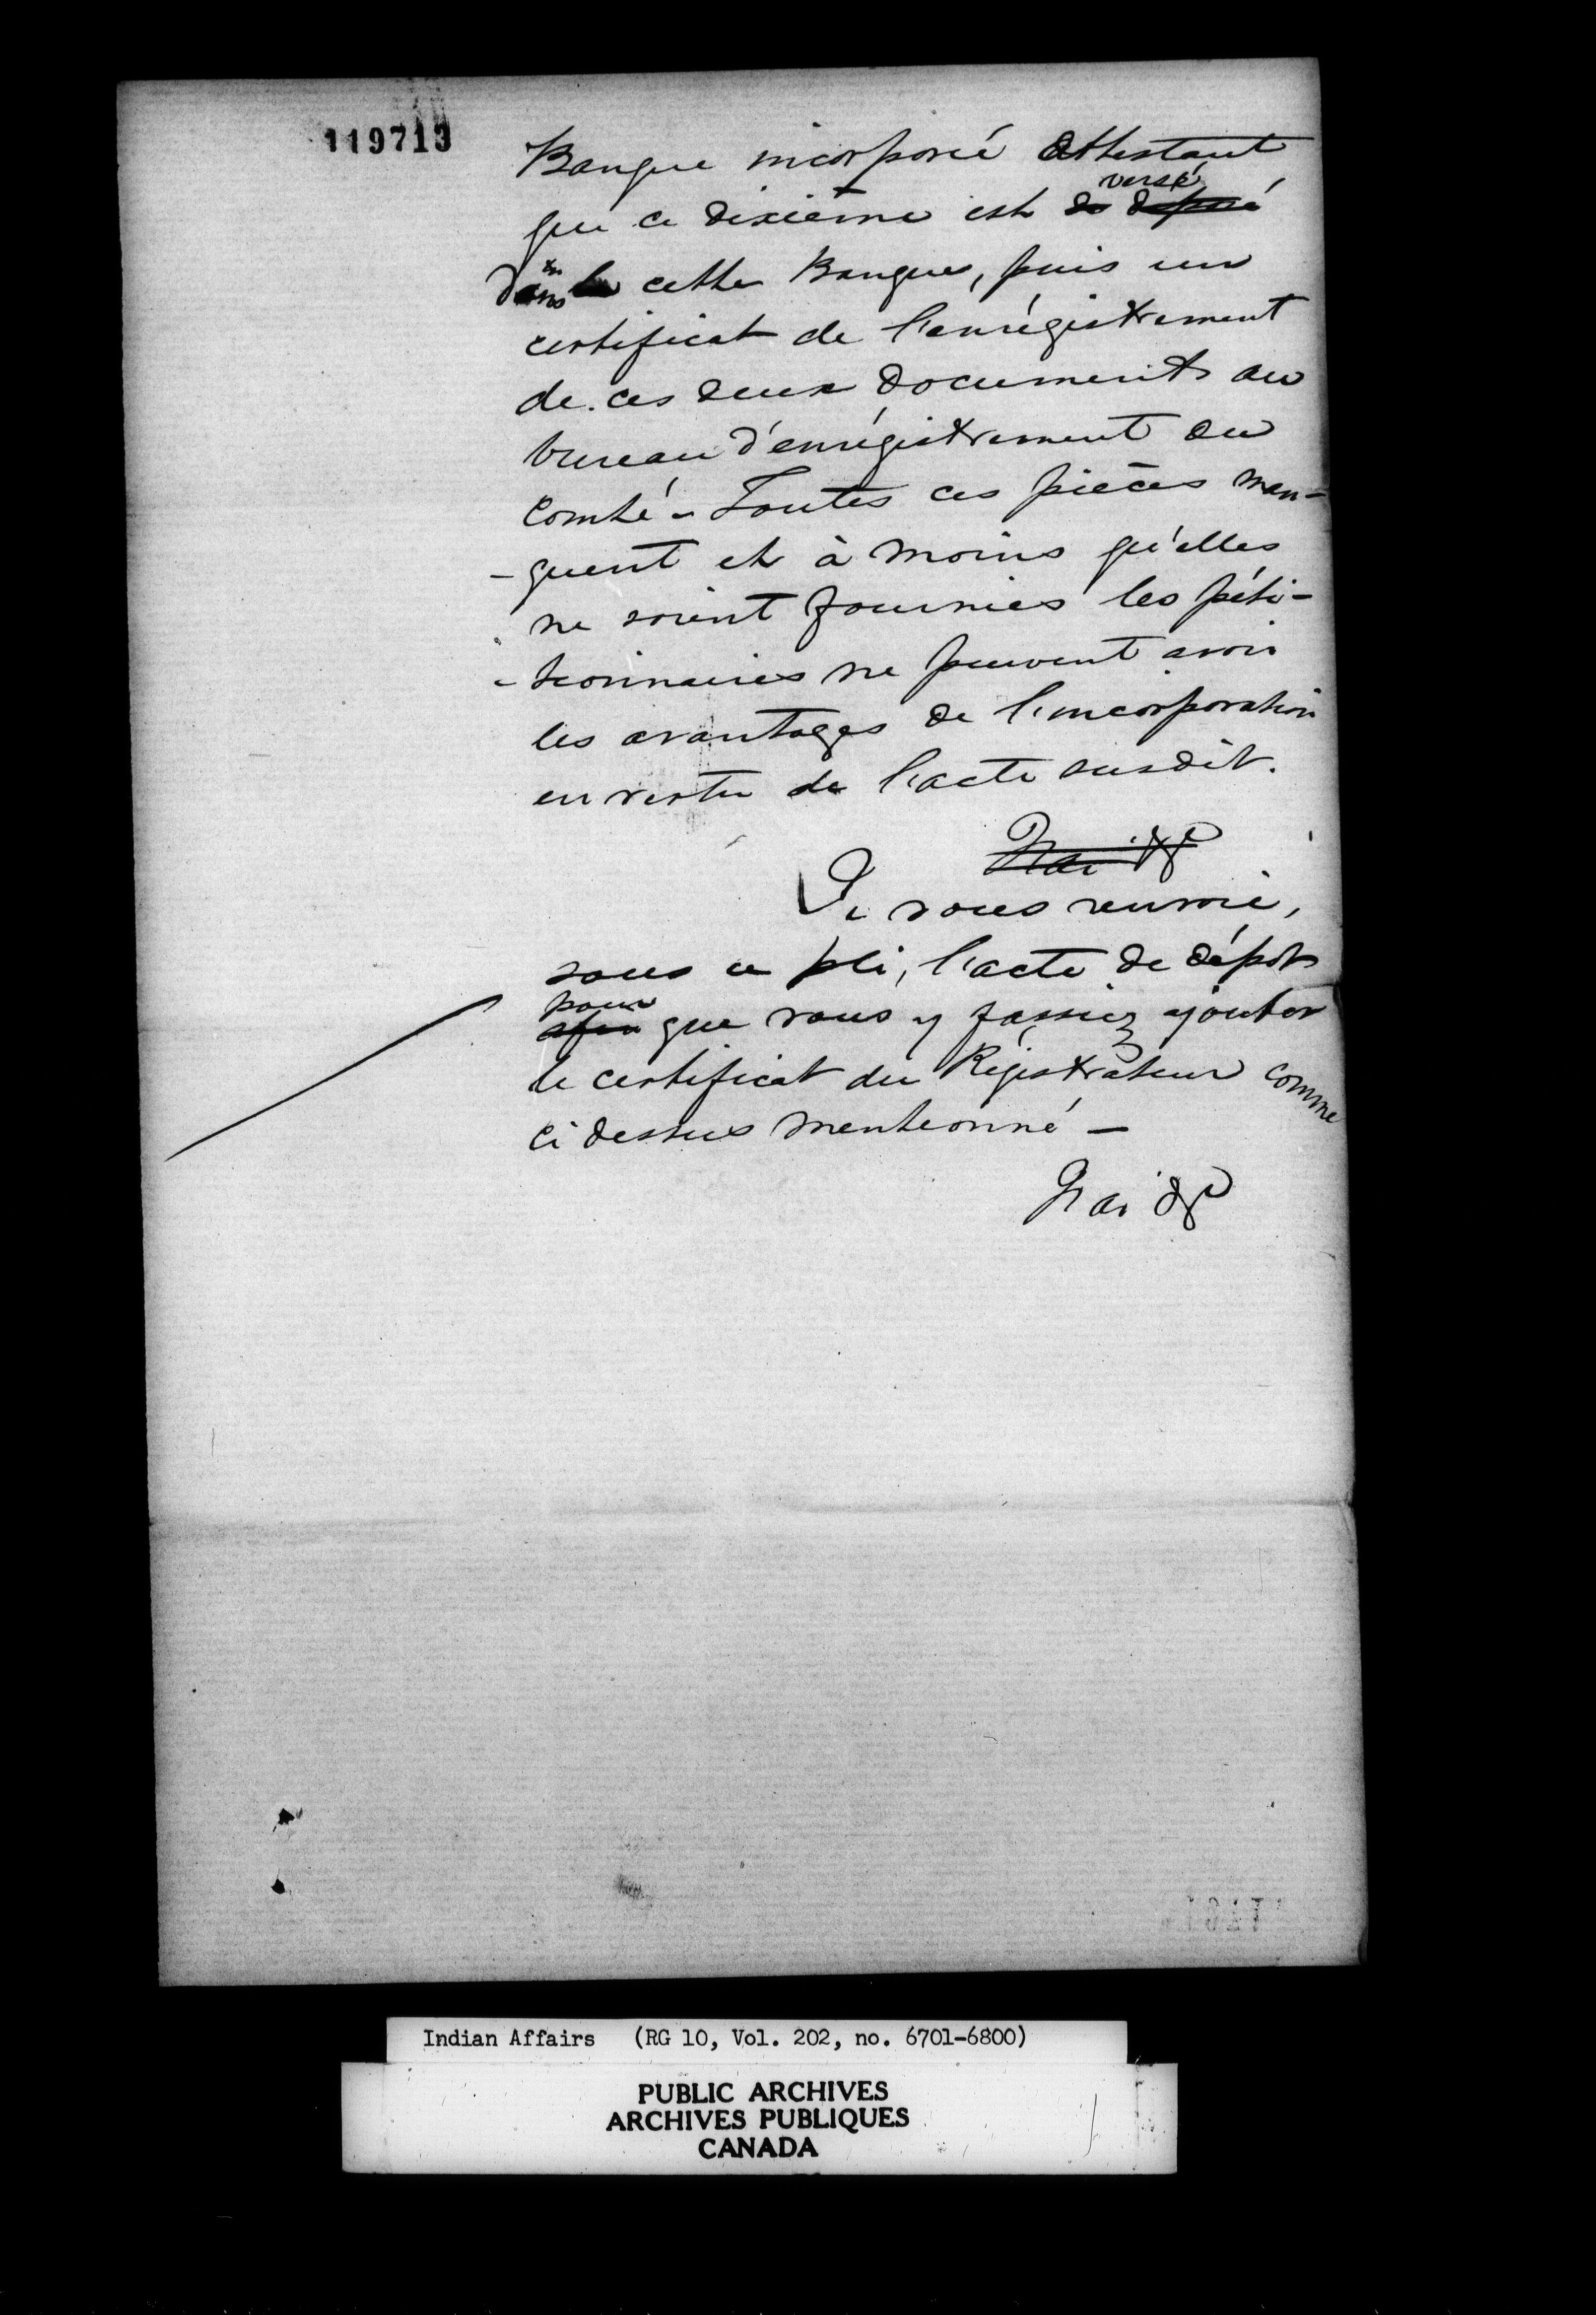 119713
Banque incorporée attestant
que ce dixième est de déposé versé
dans la cette Banque, puis un
certificat de l'enrégistrement
de ces deux documents au
bureau d'enrégistrement du
Comté - Toutes ces pièces man-
-quent et à moins qu'elles
ne soient fournies les péti-
-tionnaires ne peuvent avoir
les avantages de l'incorporation
en vertu de l'acte susdit.
J'ai &c
Je vous renvoie,
sous ce pli, l'acte de dépôt
afin pour que vous y fassiez ajouter
le certificat du Régistrateur comme
ci dessus mentionné -
J'ai &c
Indian Affairs (RG 10, Vol. 202, no. 6701-6800)
PUBLIC ARCHIVES
ARCHIVES PUBLIQUES
CANADA